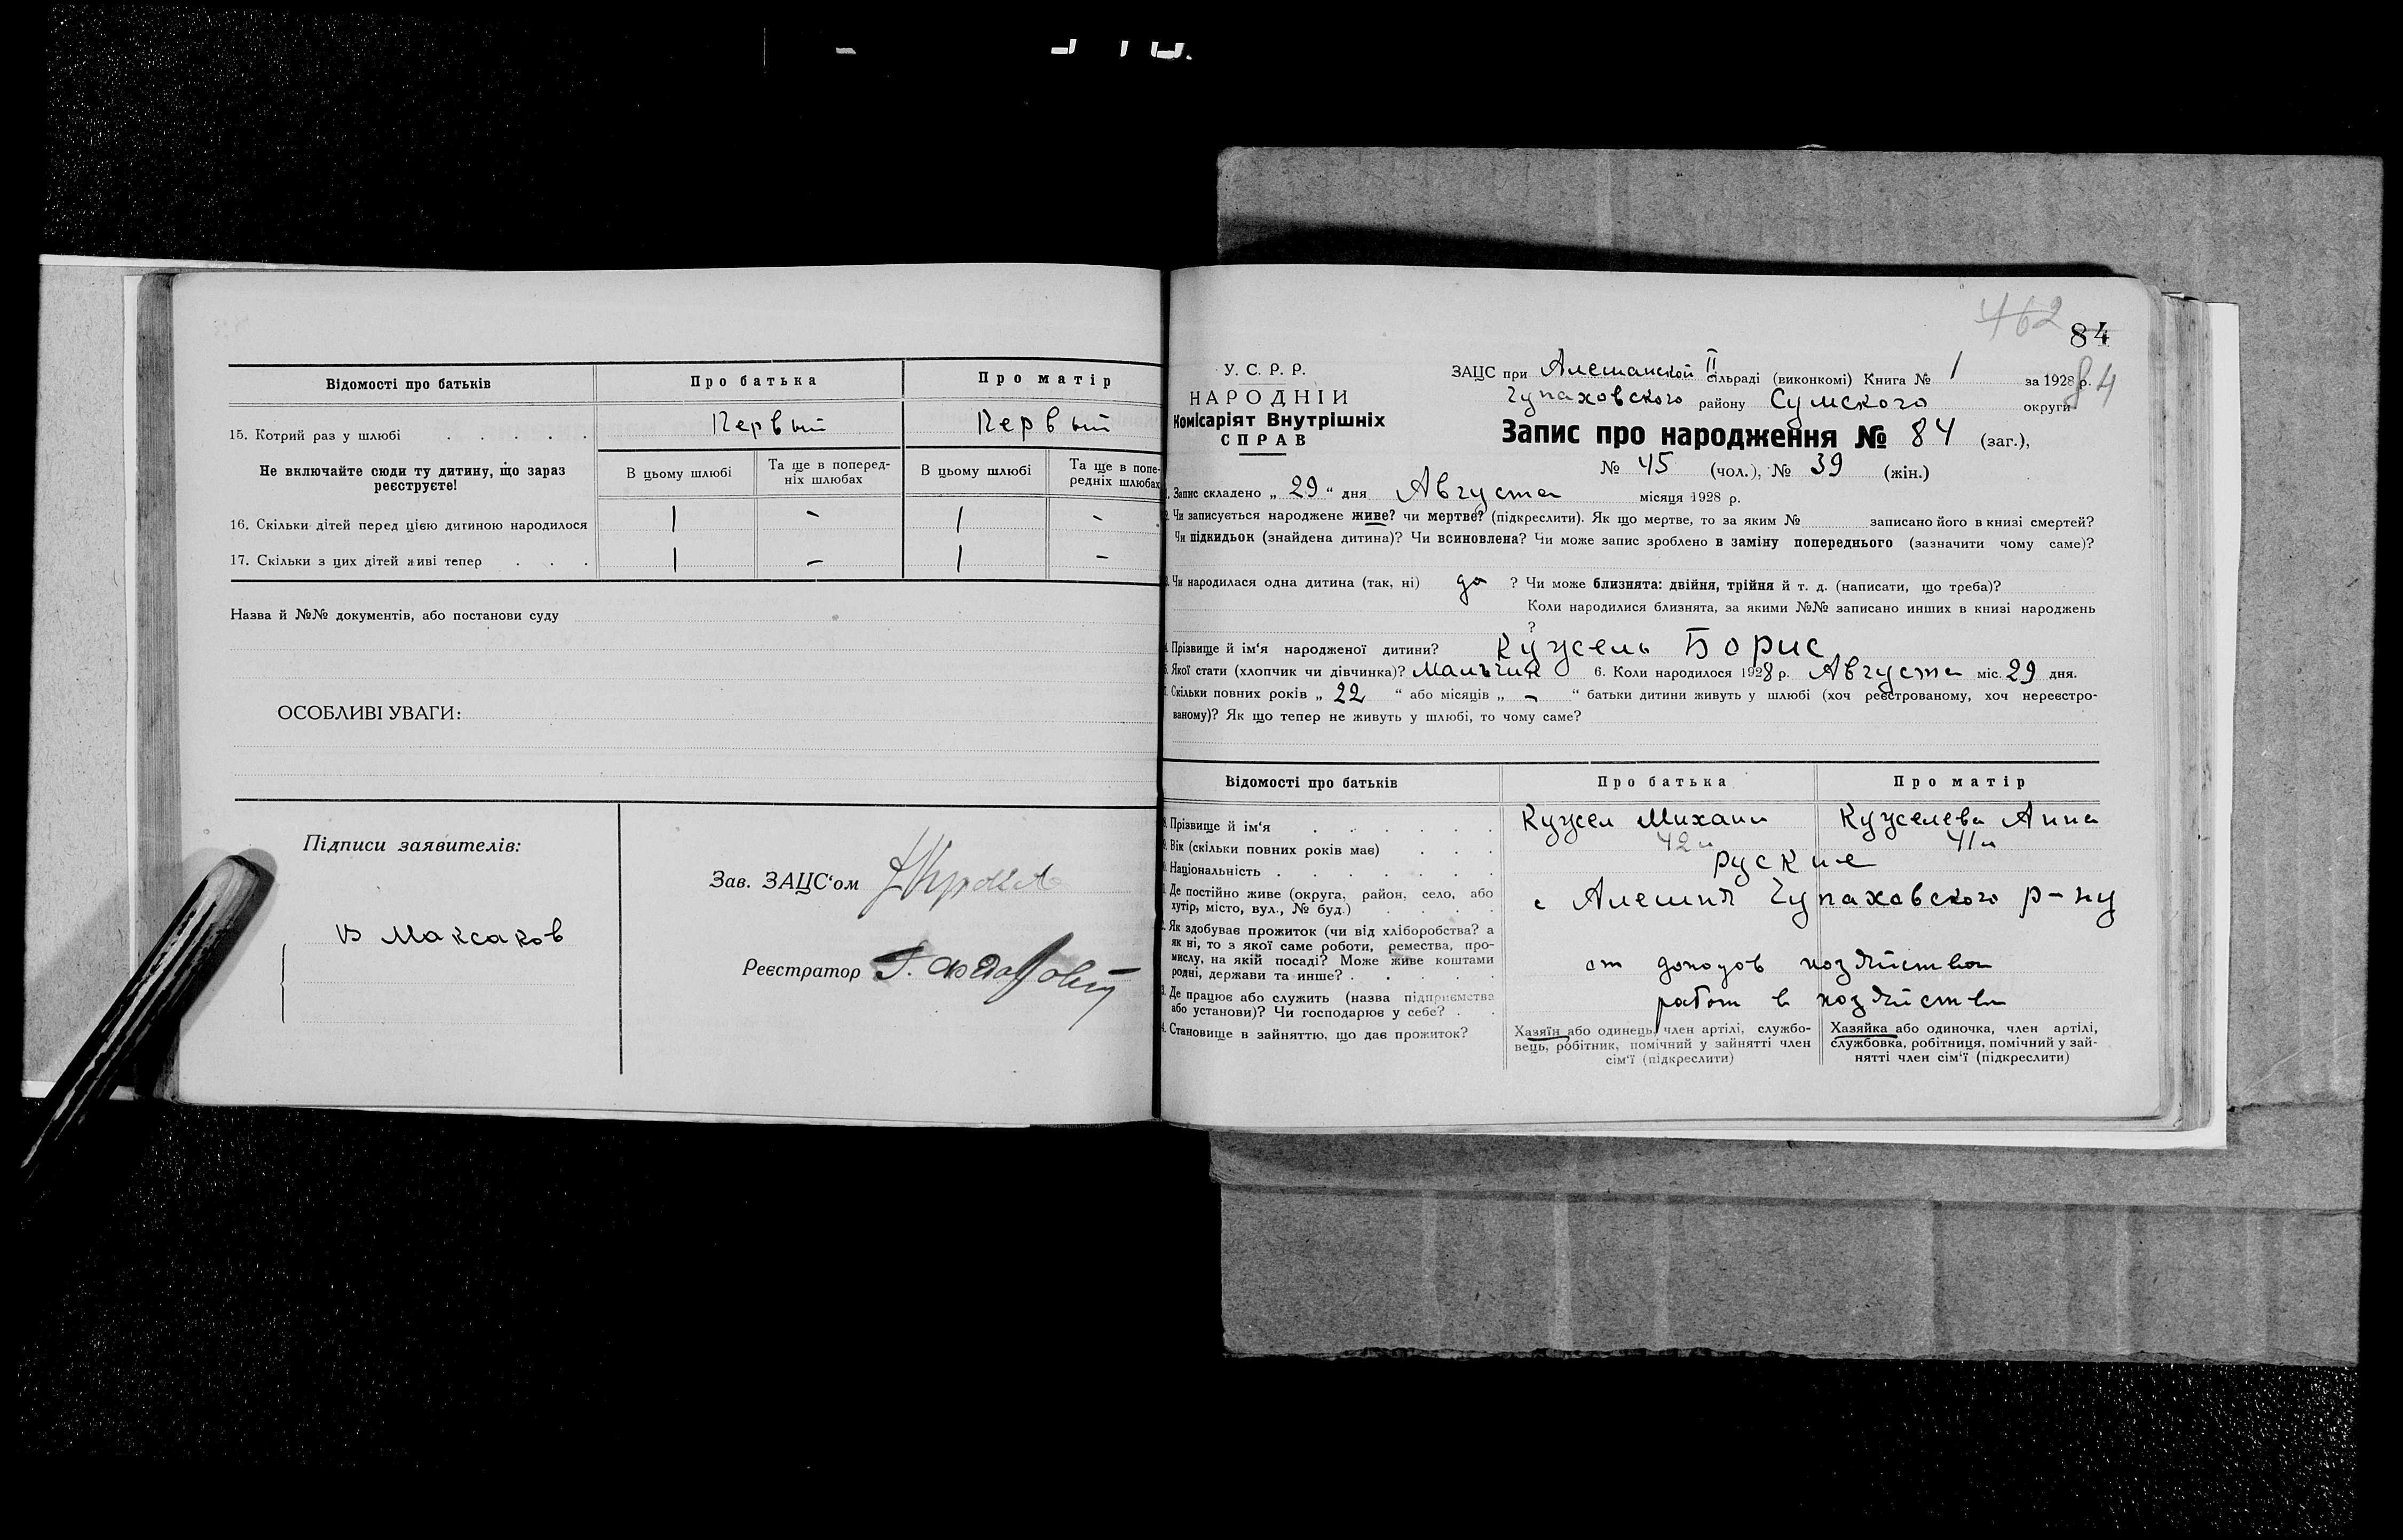 Відомості про батьків Про батька Про матір
15. Котрий раз у шлюбі . . . . . Первый Первый
Не включайте сюди ту дитину, що зараз реєструєте! В цьому шлюбі Та ще в поперед-ніх шлюбах В цьому шлюбі Та ще в попе-редніх шлюбах
16. Скільки дітей перед цією дитиною народилося 1 - 1 -
17. Скільки з цих дітей живі тепер . . . 1 - 1 -
Назва й №№ документів, або постанови суду
ОСОБЛИВІ УВАГИ:
Підписи заявителів:
Максаков
Зав. ЗАЦС'ом
Реєстратор
462
84
84
У. С. Р. Р.
НАРОДНІЙ
Комісаріят Внутрішніх
СПРАВ
ЗАЦС при Алешанской II сільраді (виконкомі) Книга № 1 за 1928 р.
Чупаховского району Сумского округи
Запис про народження № 84 (заг.),
№ 45 (чол.), № 39 (жін.)
1. Запис складено „ 29 “ дня Августа місяця 1928 р.
2. Чи записується народжене живе? чи мертве? (підкреслити). Як що мертве, то за яким № записано його в книзі смертей?
Чи підкидьок (знайдена дитина)? Чи всиновлена? Чи може запис зроблено в заміну попереднього (зазначити чому саме)?
3. Чи народилася одна дитина (так, ні) да ? Чи може близнята: двійня, трійня й т. д. (написати, що треба)?
Коли народилися близнята, за якими №№ записано инших в книзі народжень
?
4. Прізвище й ім'я народженої дитини? Кужель Борис
5. Якої стати (хлопчик чи дівчинка)? Мальчик 6. Коли народилося 1928 р. Августа міс. 29 дня.
7. Скільки повних років „ 22 “ або місяців „ - “ батьки дитини живуть у шлюбі (хоч реєстрованому, хоч нереєстро-
ваному)? Як що тепер не живуть у шлюбі, то чому саме?
Відомості про батьків Про батька Про матір
8. Прізвище й ім'я . . . . . . Кужел Михаил Кужелева Анна
9. Вік (скільки повних років має) . . . 42 л 41 л
10. Національність . . . . . . . руские
11. Де постійно живе (округа, район, село, або
хутір, місто, вул., № буд.) . . . . с Алешня Чупаховского р-ну
12. Як здобуває прожиток (чи від хліборобства? а
як ні, то з якої саме роботи, ремества, про-
мислу, на якій посаді? Може живе коштами
родні, держави та инше? . . . . . от доходов хозяйства
13. Де працює або служить (назва підприємства
або установи)? Чи господарює у себе? . . работ в хозяйстве
14. Становище в зайняттю, що дає прожиток?
Хазяїн або одинець, член артілі, службо-
вець, робітник, помічний у зайнятті член
сім'ї (підкреслити)
Хазяйка або одиночка, член артілі,
службовка, робітниця, помічний у зай-
нятті член сім'ї (підкреслити)